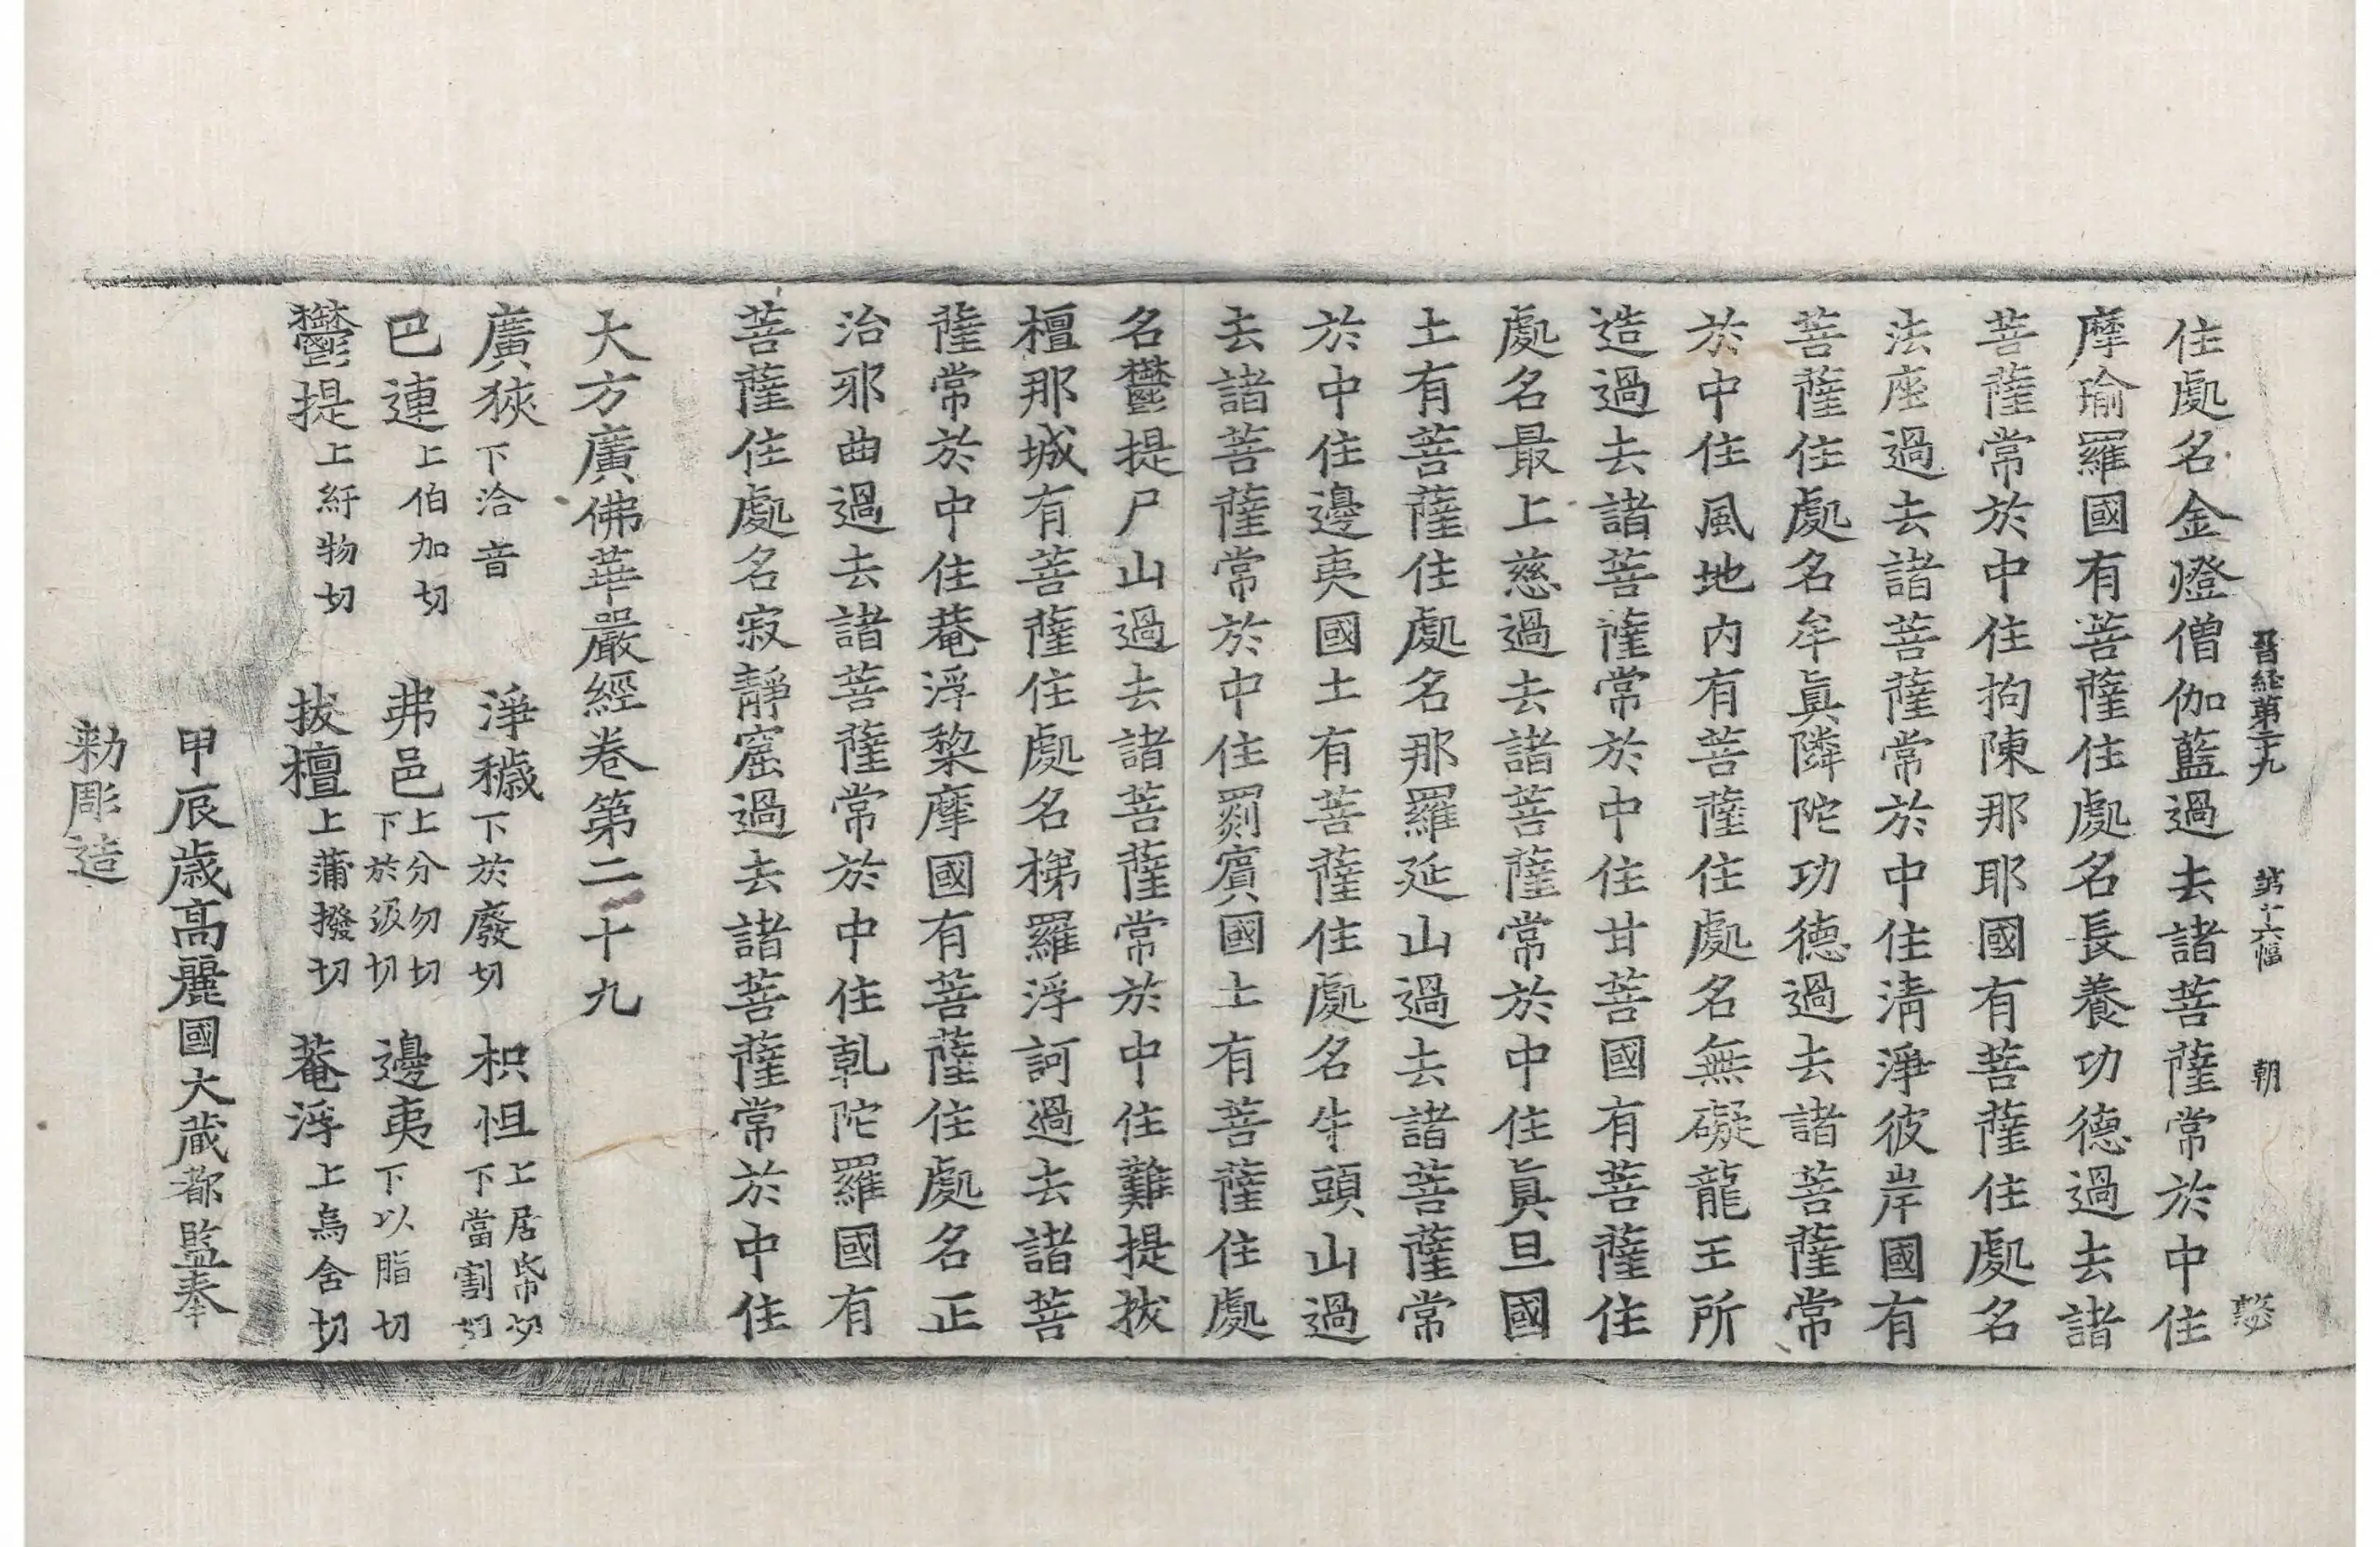 晉経第二十九 第十六幅 朝
住處名金燈僧伽藍過去諸菩薩常於中住
摩瑜羅國有菩薩住處名長養功德過去諸
菩薩常於中住拘陳那耶國有菩薩住處名
法座過去諸菩薩常於中住清淨彼岸國有
菩薩住處名牟眞隣陀功德過去諸菩薩常
於中住風地內有菩薩住處名無礙龍王所
造過去諸菩薩常於中住甘菩國有菩薩住
處名最上慈過去諸菩薩常於中住眞旦國
土有菩薩住處名那羅延山過去諸菩薩常
於中住邊夷國土有菩薩住處名牛頭山過
去諸菩薩常於中住罽賓國土有菩薩住處
名鬱提尸山過去諸菩薩常於中住難提拔
檀那城有菩薩住處名梯羅浮訶過去諸菩
薩常於中住菴浮棃摩國有菩薩住處名正
治邪曲過去諸菩薩常於中住乹陀羅國有
菩薩住處名寂靜窟過去諸菩薩常於中住
大方廣佛華嚴經卷第二十九
廣狹下洽音 淨穢下於廢切 枳怛上居帋切下當割切
巴連上伯加切 弗邑上分勿切下於汲切 邊夷下以脂切
鬱提上紆物切 拔檀上蒲撥切 菴浮上烏含切
甲辰歲高麗國大藏都監奉
勑彫造